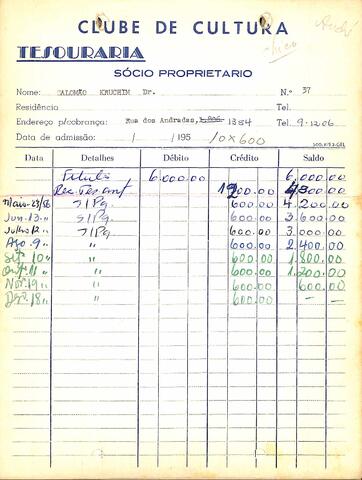 CLUBE DE CULTURA
TESOURARIA
SÓCIO PROPRIETARIO
Nome: SALOMÃO KRUCHIN Dr. N.º 37
Residência Tel.
Endereço p/cobrança: Rua dos Andradas, 1384 Tel. 9-1206
Data de admissão: / / 195 10x600
Data Detalhes Débito Crédito Saldo
Título 6.000.00 6.000.00
Rec. Tes. ant 1200.00 4.800.00
Maio-23/56 S/Pg. 600.00 4.200.00
Jun.13 " S/Pg. 600.00 3.600.00
Julho 12 " S/Pg. 600.00 3.000.00
Ago. 9 " " 600.00 2.400.00
Set. 10 " " 600.00 1.800.00
Out. 11 " " 600.00 1.200.00
Nov. 19 " " 600.00 600.00
Dez. 18 " " 600.00 — —